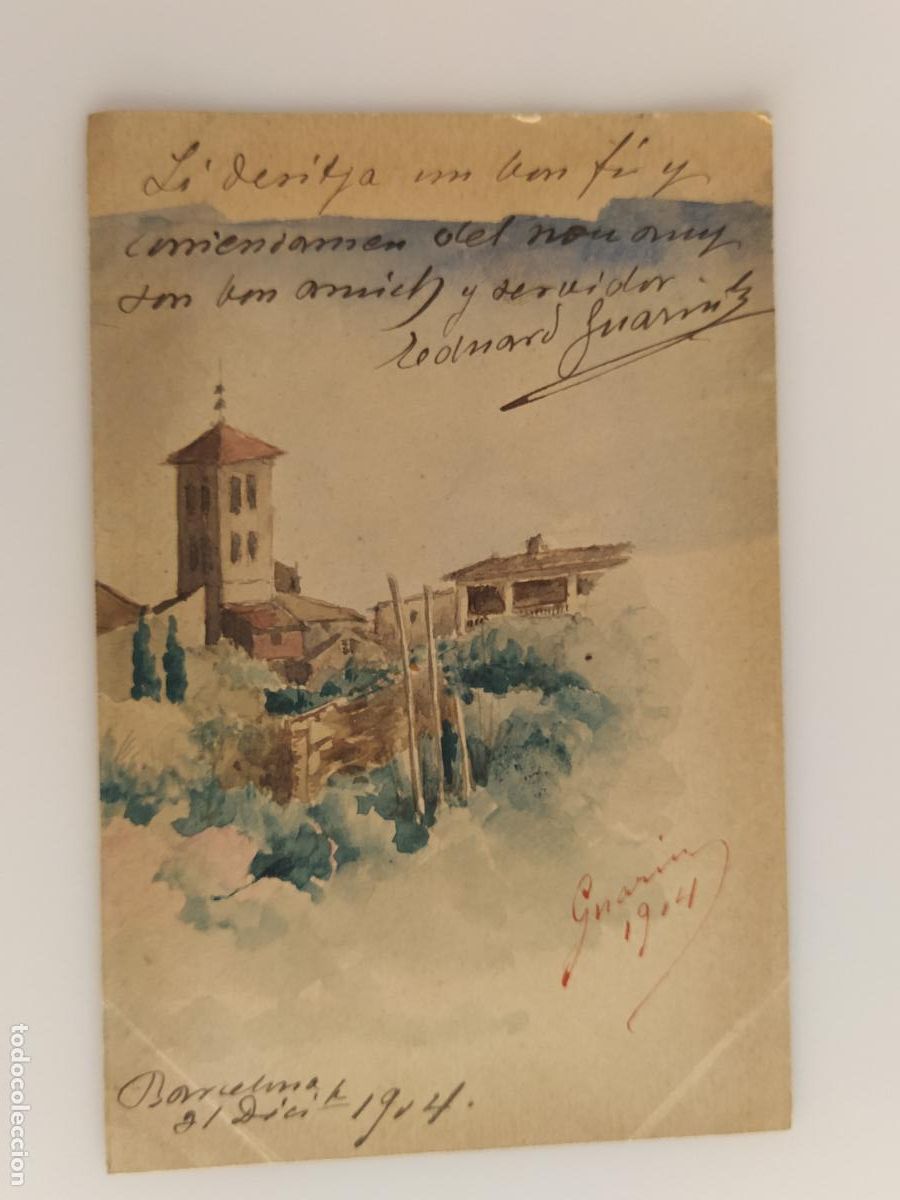 Li desitja un bon fi y
comensamen del nou any
son bon amich y servidor
Eduard Guarin
Guarin
1904
Barcelona
31 Dici 1904.
todocoleccion